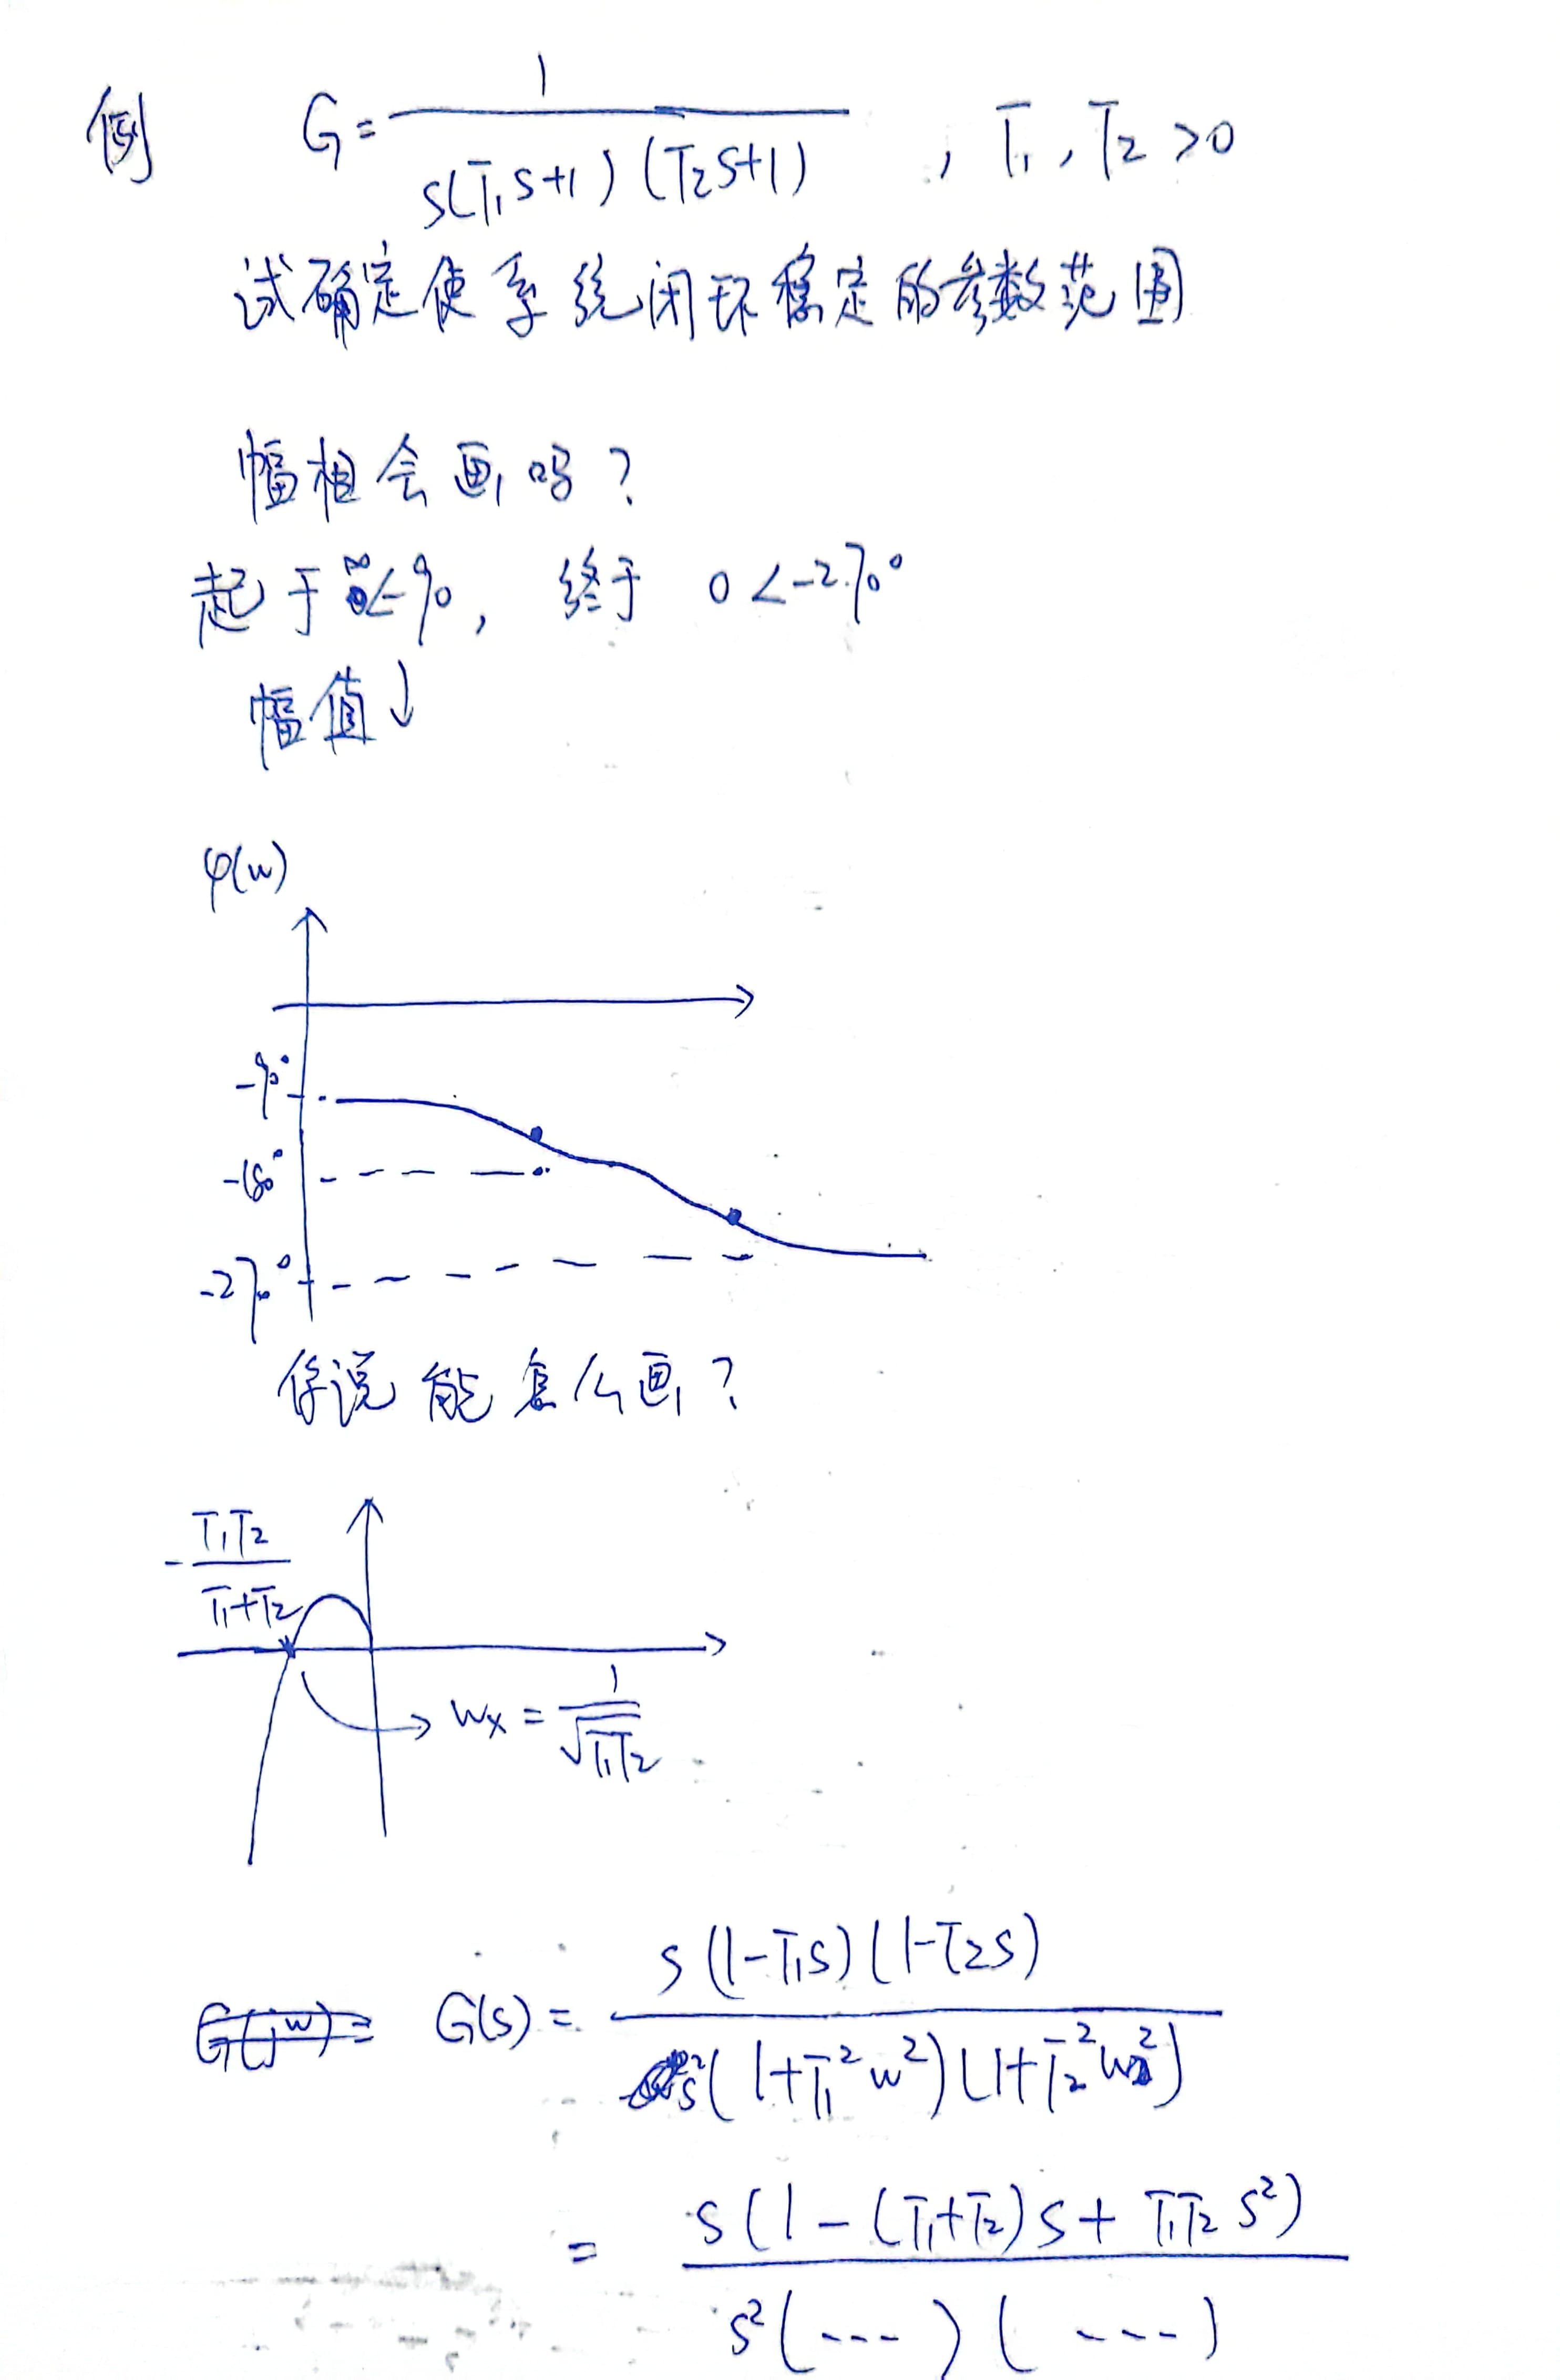 例 G = 1 / s(T₁s+1)(T₂s+1) , T₁, T₂ >0
试确定使系统闭环稳定的参数范围
幅相会画吗?
起于 ∞∠-90, 终于 0∠-270°
幅值↓
φ(w)
-90°
-180°
-270°
你说能怎么画?
- T₁T₂ / T₁+T₂
wx = 1 / √T₁T₂
G(jw)= G(s) = s(1-T₁s)(1-T₂s) / s²(1+T₁²w²)(1+T₂²w²)
= s(1-(T₁+T₂)s+T₁T₂s²) / s²(---)(----)